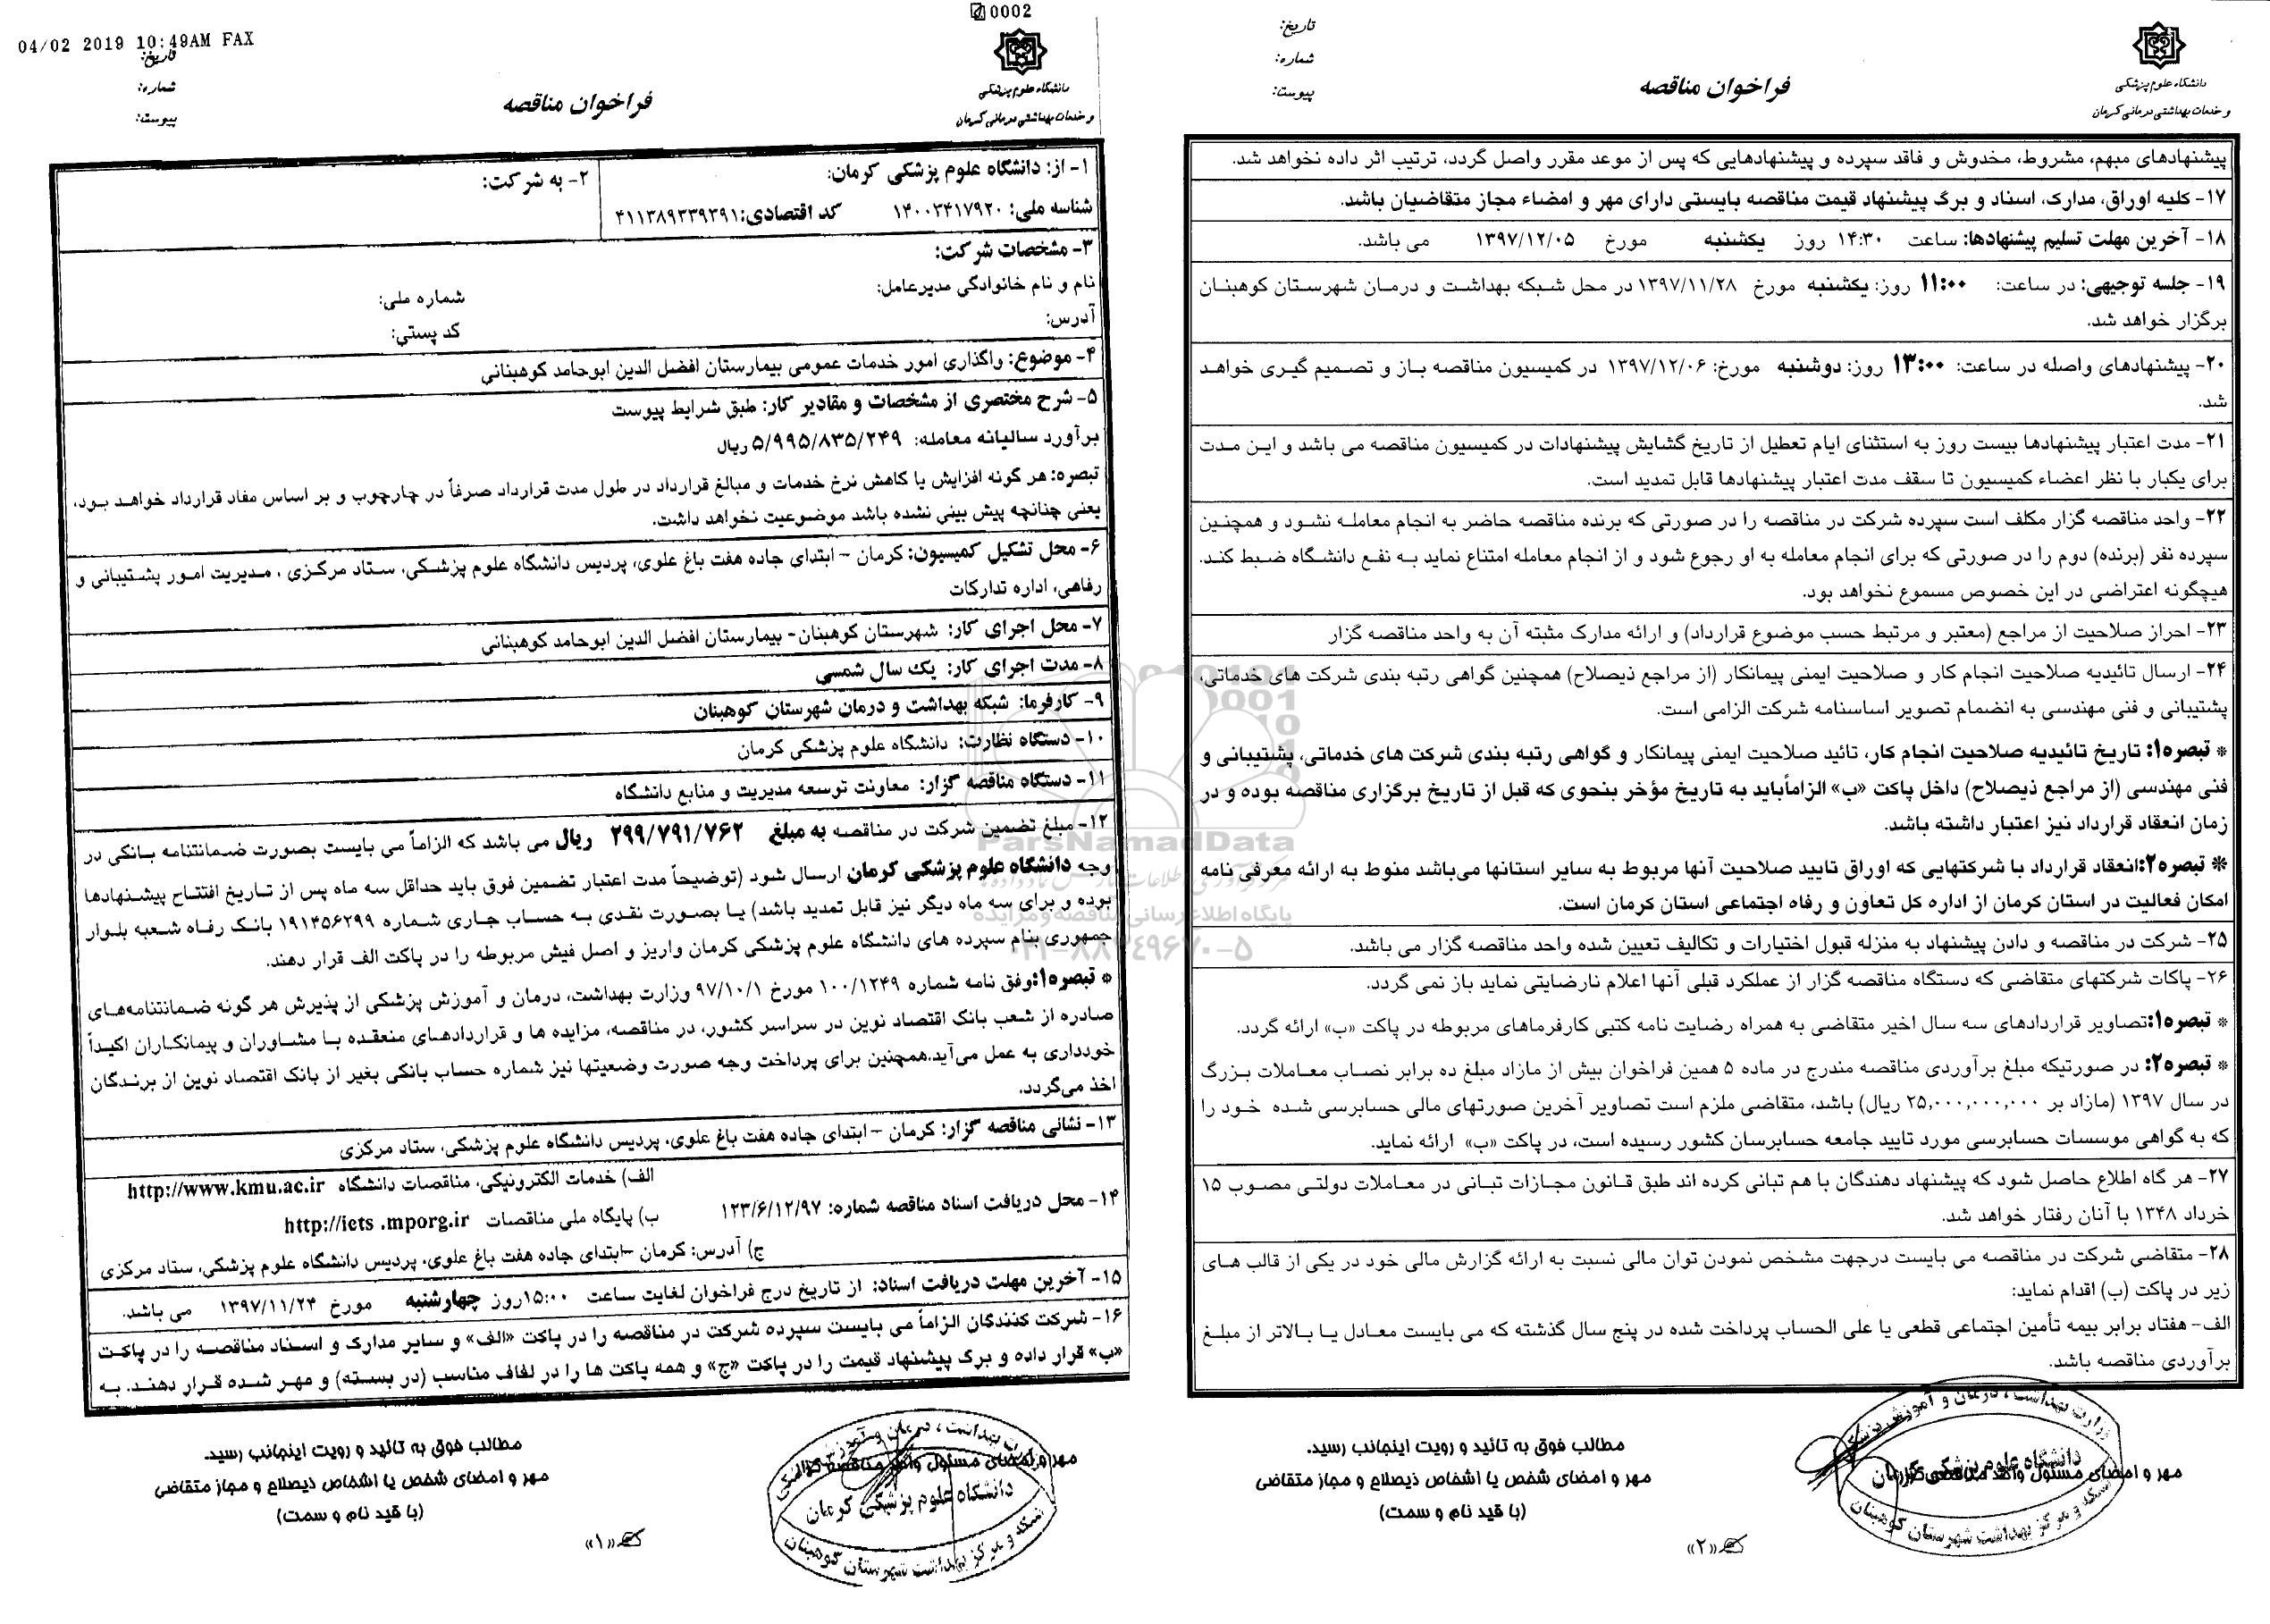 04/02 2019 10:49AM FAX
0002
دانشگاه علوم پزشکی
و خدمات بهداشتی درمانی کرمان
فراخوان مناقصه
تاریخ:
شماره:
پیوست:
۱- از: دانشگاه علوم پزشکی کرمان:
شناسه ملی: ۱۴۰۰۳۴۱۷۹۲۰ کد اقتصادی:۴۱۱۳۸۹۳۳۹۳۹۱
۲- به شرکت:
۳- مشخصات شرکت:
نام و نام خانوادگی مدیرعامل: شماره ملی:
آدرس: کد پستی:
۴- موضوع: واگذاری امور خدمات عمومی بیمارستان افضل الدین ابوحامد کوهبنانی
۵- شرح مختصری از مشخصات و مقادیر کار: طبق شرایط پیوست
برآورد سالیانه معامله: ۵/۹۹۵/۸۳۵/۲۴۹ ریال
تبصره: هر گونه افزایش یا کاهش نرخ خدمات و مبالغ قرارداد در طول مدت قرارداد صرفاً در چارچوب و بر اساس مفاد قرارداد خواهد بود،
یعنی چنانچه پیش بینی نشده باشد موضوعیت نخواهد داشت.
۶- محل تشکیل کمیسیون: کرمان – ابتدای جاده هفت باغ علوی، پردیس دانشگاه علوم پزشکی، ستاد مرکزی ، مدیریت امور پشتیبانی و
رفاهی، اداره تدارکات
۷- محل اجرای کار: شهرستان کوهبنان- بیمارستان افضل الدین ابوحامد کوهبنانی
۸- مدت اجرای کار: یک سال شمسی
۹- کارفرما: شبکه بهداشت و درمان شهرستان کوهبنان
۱۰- دستگاه نظارت: دانشگاه علوم پزشکی کرمان
۱۱- دستگاه مناقصه گزار: معاونت توسعه مدیریت و منابع دانشگاه
۱۲- مبلغ تضمین شرکت در مناقصه به مبلغ ۲۹۹/۷۹۱/۷۶۲ ریال می باشد که الزاماً می بایست بصورت ضمانتنامه بانکی در
وجه دانشگاه علوم پزشکی کرمان ارسال شود (توضیحاً مدت اعتبار تضمین فوق باید حداقل سه ماه پس از تاریخ افتتاح پیشنهادها
بوده و برای سه ماه دیگر نیز قابل تمدید باشد) یا بصورت نقدی به حساب جاری شماره ۱۹۱۴۵۶۲۹۹ بانک رفاه شعبه بلوار
جمهوری بنام سپرده های دانشگاه علوم پزشکی کرمان واریز و اصل فیش مربوطه را در پاکت الف قرار دهند.
* تبصره۱:وفق نامه شماره ۱۰۰/۱۲۴۹ مورخ ۹۷/۱۰/۱ وزارت بهداشت، درمان و آموزش پزشکی از پذیرش هر گونه ضمانتنامه‌های
صادره از شعب بانک اقتصاد نوین در سراسر کشور، در مناقصه، مزایده ها و قراردادهای منعقده با مشاوران و پیمانکاران اکیداً
خودداری به عمل می‌آید.همچنین برای پرداخت وجه صورت وضعیتها نیز شماره حساب بانکی بغیر از بانک اقتصاد نوین از برندگان
اخذ می‌گردد.
۱۳- نشانی مناقصه گزار: کرمان – ابتدای جاده هفت باغ علوی، پردیس دانشگاه علوم پزشکی، ستاد مرکزی
الف) خدمات الکترونیکی، مناقصات دانشگاه http://www.kmu.ac.ir
۱۴- محل دریافت اسناد مناقصه شماره: ۱۲۳/۶/۱۲/۹۷ ب) پایگاه ملی مناقصات http://iets .mporg.ir
ج) آدرس: کرمان –ابتدای جاده هفت باغ علوی، پردیس دانشگاه علوم پزشکی، ستاد مرکزی
۱۵- آخرین مهلت دریافت اسناد: از تاریخ درج فراخوان لغایت ساعت ۱۵:۰۰روز چهارشنبه مورخ ۱۳۹۷/۱۱/۲۴ می باشد.
۱۶- شرکت کنندگان الزاماً می بایست سپرده شرکت در مناقصه را در پاکت «الف» و سایر مدارک و اسناد مناقصه را در پاکت
«ب» قرار داده و برگ پیشنهاد قیمت را در پاکت «ج» و همه پاکت ها را در لفاف مناسب (در بسته) و مهر شده قرار دهند. به
مطالب فوق به تائید و رویت اینجانب رسید.
مهر و امضای شخص یا اشخاص ذیصلاح و مجاز متقاضی
(با قید نام و سمت)
مهر و امضای مسئول واحد مناقصه گزار
وزارت بهداشت ، درمان و آموزش پزشکی
دانشگاه علوم پزشکی کرمان
شبکه و مرکز بهداشت شهرستان کوهبنان
«۱»
دانشگاه علوم پزشکی
و خدمات بهداشتی درمانی کرمان
فراخوان مناقصه
تاریخ:
شماره:
پیوست:
پیشنهادهای مبهم، مشروط، مخدوش و فاقد سپرده و پیشنهادهایی که پس از موعد مقرر واصل گردد، ترتیب اثر داده نخواهد شد.
۱۷- کلیه اوراق، مدارک، اسناد و برگ پیشنهاد قیمت مناقصه بایستی دارای مهر و امضاء مجاز متقاضیان باشد.
۱۸- آخرین مهلت تسلیم پیشنهادها: ساعت ۱۴:۳۰ روز یکشنبه مورخ ۱۳۹۷/۱۲/۰۵ می باشد.
۱۹- جلسه توجیهی: در ساعت: ۱۱:۰۰ روز: یکشنبه مورخ ۱۳۹۷/۱۱/۲۸ در محل شبکه بهداشت و درمان شهرستان کوهبنان
برگزار خواهد شد.
۲۰- پیشنهادهای واصله در ساعت: ۱۳:۰۰ روز: دوشنبه مورخ: ۱۳۹۷/۱۲/۰۶ در کمیسیون مناقصه باز و تصمیم گیری خواهد
شد.
۲۱- مدت اعتبار پیشنهادها بیست روز به استثنای ایام تعطیل از تاریخ گشایش پیشنهادات در کمیسیون مناقصه می باشد و این مدت
برای یکبار با نظر اعضاء کمیسیون تا سقف مدت اعتبار پیشنهادها قابل تمدید است.
۲۲- واحد مناقصه گزار مکلف است سپرده شرکت در مناقصه را در صورتی که برنده مناقصه حاضر به انجام معامله نشود و همچنین
سپرده نفر (برنده) دوم را در صورتی که برای انجام معامله به او رجوع شود و از انجام معامله امتناع نماید به نفع دانشگاه ضبط کند.
هیچگونه اعتراضی در این خصوص مسموع نخواهد بود.
۲۳- احراز صلاحیت از مراجع (معتبر و مرتبط حسب موضوع قرارداد) و ارائه مدارک مثبته آن به واحد مناقصه گزار
۲۴- ارسال تائیدیه صلاحیت انجام کار و صلاحیت ایمنی پیمانکار (از مراجع ذیصلاح) همچنین گواهی رتبه بندی شرکت های خدماتی،
پشتیبانی و فنی مهندسی به انضمام تصویر اساسنامه شرکت الزامی است.
* تبصره۱: تاریخ تائیدیه صلاحیت انجام کار، تائید صلاحیت ایمنی پیمانکار و گواهی رتبه بندی شرکت های خدماتی، پشتیبانی و
فنی مهندسی (از مراجع ذیصلاح) داخل پاکت «ب» الزاماًباید به تاریخ مؤخر بنحوی که قبل از تاریخ برگزاری مناقصه بوده و در
زمان انعقاد قرارداد نیز اعتبار داشته باشد.
* تبصره۲:انعقاد قرارداد با شرکتهایی که اوراق تایید صلاحیت آنها مربوط به سایر استانها می‌باشد منوط به ارائه معرفی نامه
امکان فعالیت در استان کرمان از اداره کل تعاون و رفاه اجتماعی استان کرمان است.
۲۵- شرکت در مناقصه و دادن پیشنهاد به منزله قبول اختیارات و تکالیف تعیین شده واحد مناقصه گزار می باشد.
۲۶- پاکات شرکتهای متقاضی که دستگاه مناقصه گزار از عملکرد قبلی آنها اعلام نارضایتی نماید باز نمی گردد.
* تبصره۱:تصاویر قراردادهای سه سال اخیر متقاضی به همراه رضایت نامه کتبی کارفرماهای مربوطه در پاکت «ب» ارائه گردد.
* تبصره۲: در صورتیکه مبلغ برآوردی مناقصه مندرج در ماده ۵ همین فراخوان بیش از مازاد مبلغ ده برابر نصاب معاملات بزرگ
در سال ۱۳۹۷ (مازاد بر ۲۵,۰۰۰,۰۰۰,۰۰۰ ریال) باشد، متقاضی ملزم است تصاویر آخرین صورتهای مالی حسابرسی شده خود را
که به گواهی موسسات حسابرسی مورد تایید جامعه حسابرسان کشور رسیده است، در پاکت «ب» ارائه نماید.
۲۷- هر گاه اطلاع حاصل شود که پیشنهاد دهندگان با هم تبانی کرده اند طبق قانون مجازات تبانی در معاملات دولتی مصوب ۱۵
خرداد ۱۳۴۸ با آنان رفتار خواهد شد.
۲۸- متقاضی شرکت در مناقصه می بایست درجهت مشخص نمودن توان مالی نسبت به ارائه گزارش مالی خود در یکی از قالب های
زیر در پاکت (ب) اقدام نماید:
الف- هفتاد برابر بیمه تأمین اجتماعی قطعی یا علی الحساب پرداخت شده در پنج سال گذشته که می بایست معادل یا بالاتر از مبلغ
برآوردی مناقصه باشد.
مطالب فوق به تائید و رویت اینجانب رسید.
مهر و امضای شخص یا اشخاص ذیصلاح و مجاز متقاضی
(با قید نام و سمت)
مهر و امضای مسئول واحد مناقصه گزار
وزارت بهداشت ، درمان و آموزش پزشکی
دانشگاه علوم پزشکی کرمان
شبکه و مرکز بهداشت شهرستان کوهبنان
«۲»
ParsNamadData
پایگاه اطلاع رسانی مناقصه و مزایده